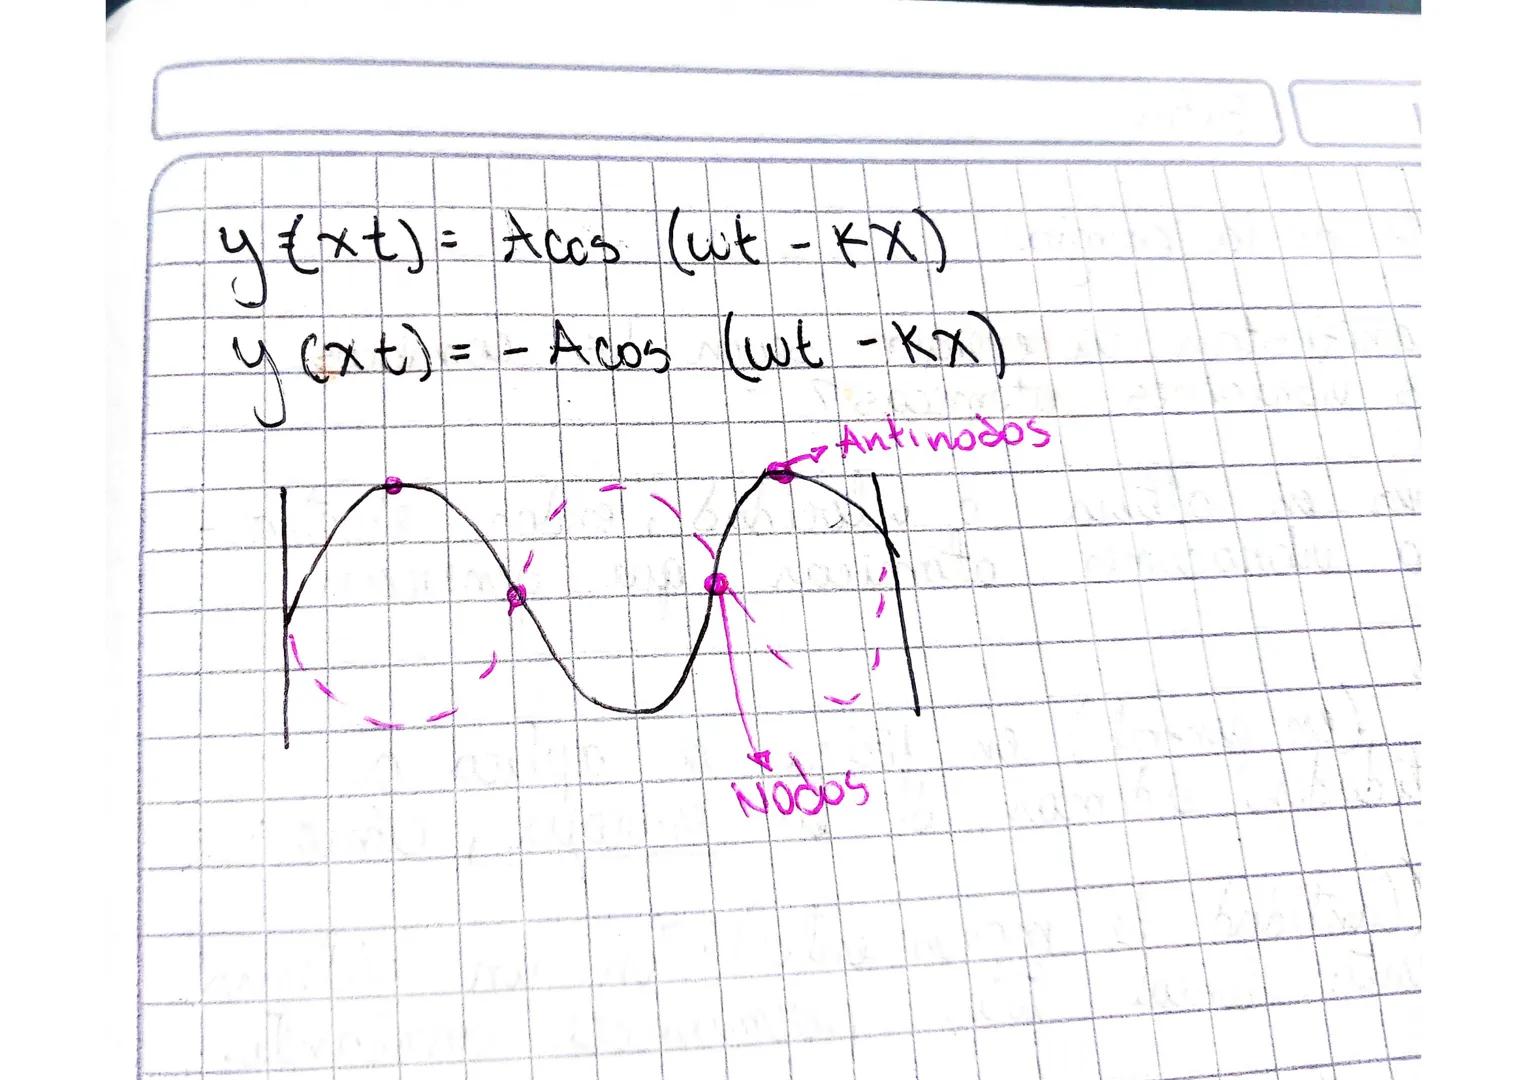 y(xt) = Acos (wt - KX)
y(xt) = - Acos (wt - KX)
Antinodos
Nodos